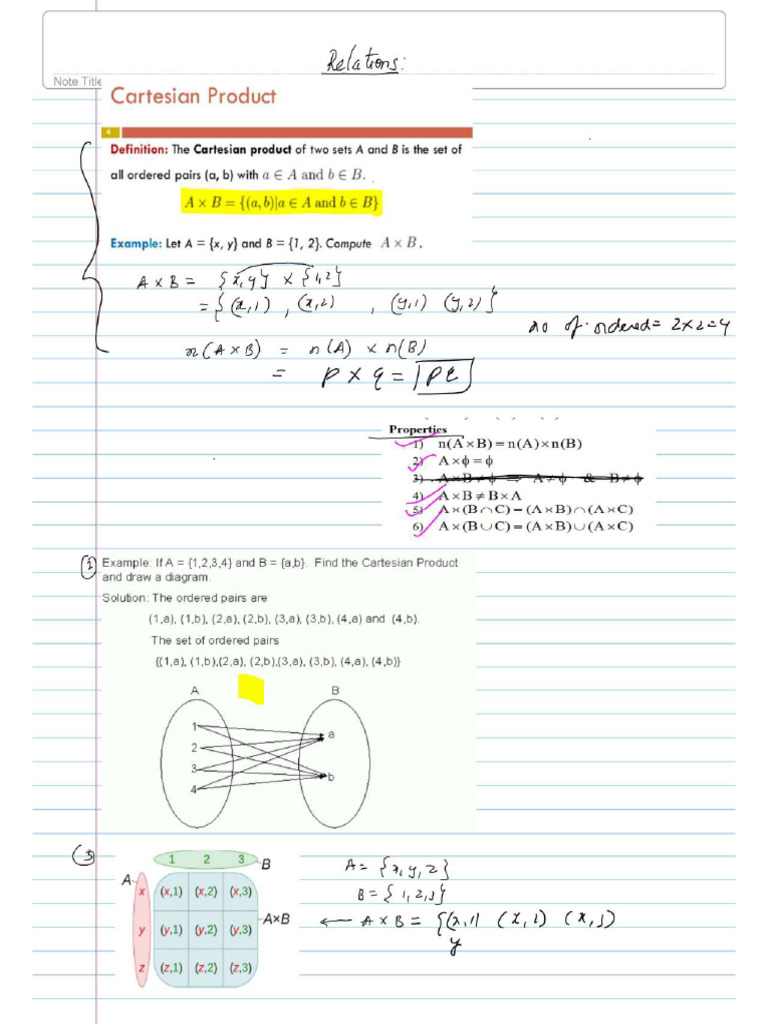 Relations:
Note Title
Cartesian Product
4
Definition: The Cartesian product of two sets A and B is the set of
all ordered pairs (a, b) with a ∈ A and b ∈ B.
A × B = {(a, b)|a ∈ A and b ∈ B}
Example: Let A = {x, y} and B = {1, 2}. Compute A × B.
A × B = {x, y} × {1, 2}
= {(x,1) , (x,2) , (y,1) (y,2)}
no of ordered = 2×2=4
n(A × B) = n(A) × n(B)
= p × q = pq
Properties
1) n(A × B) = n(A) × n(B)
2) A × ϕ = ϕ
3) A × B ≠ ϕ ⇒ A ≠ ϕ & B ≠ ϕ
4) A × B ≠ B × A
5) A × (B ∩ C) = (A × B) ∩ (A × C)
6) A × (B ∪ C) = (A × B) ∪ (A × C)
① Example: If A = {1,2,3,4} and B = {a,b}. Find the Cartesian Product
and draw a diagram.
Solution: The ordered pairs are
(1,a), (1,b), (2,a), (2,b), (3,a), (3,b), (4,a) and (4,b).
The set of ordered pairs
{(1,a), (1,b),(2,a), (2,b),(3,a), (3,b), (4,a), (4,b)}
A B
1
a
2
3
b
4
(3)
1 2 3 B
A
x (x,1) (x,2) (x,3)
y (y,1) (y,2) (y,3) A×B
z (z,1) (z,2) (z,3)
A = {x, y, z}
B = {1, 2, 3}
← A × B = {(x,1) (x,2) (x,3)
y